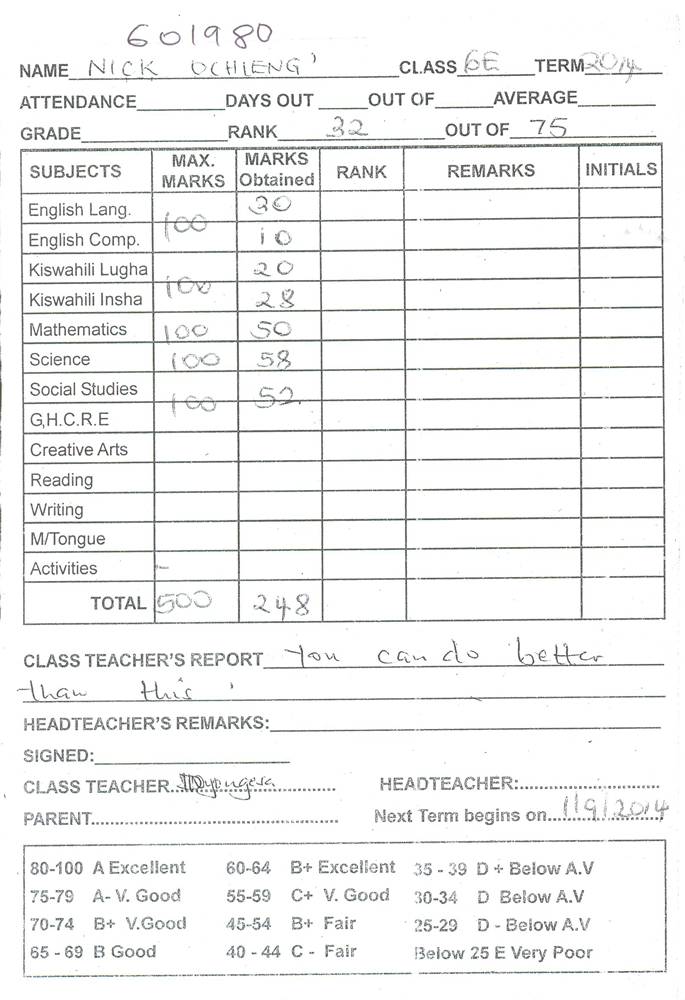 601980
NAME NICK OCHIENG' CLASS 6E TERM 2014
ATTENDANCE DAYS OUT OUT OF AVERAGE
GRADE RANK 32 OUT OF 75
SUBJECTS MAX. MARKS MARKS Obtained RANK REMARKS INITIALS
English Lang. 100 30
English Comp. 10
Kiswahili Lugha 100 20
Kiswahili Insha 28
Mathematics 100 50
Science 100 58
Social Studies 100 52
G,H.C.R.E
Creative Arts
Reading
Writing
M/Tongue
Activities -
TOTAL 500 248
CLASS TEACHER'S REPORT You can do better
than this '
HEADTEACHER'S REMARKS:
SIGNED:
CLASS TEACHER HEADTEACHER:
PARENT Next Term begins on 1/9/2014
80-100 A Excellent 60-64 B+ Excellent 35 - 39 D + Below A.V
75-79 A- V. Good 55-59 C+ V. Good 30-34 D Below A.V
70-74 B+ V.Good 45-54 B+ Fair 25-29 D - Below A.V
65 - 69 B Good 40 - 44 C - Fair Below 25 E Very Poor